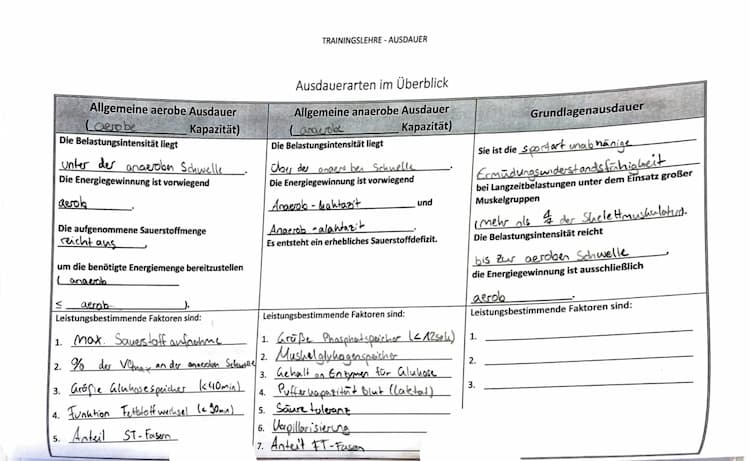 TRAININGSLEHRE - AUSDAUER
Ausdauerarten im Überblick
Allgemeine aerobe Ausdauer
( aerobe Kapazität)
Die Belastungsintensität liegt
unter der anaeroben Schwelle.
Die Energiegewinnung ist vorwiegend
aerob.
Die aufgenommene Sauerstoffmenge
reicht aus,
um die benötigte Energiemenge bereitzustellen
( anaerob
≤ aerob ).
Leistungsbestimmende Faktoren sind:
1. max. Sauerstoffaufnahme
2. % der VO2max an der anaeroben Schwelle
3. Größe Glukosespeicher (<40min)
4. Funktion Fettstoffwechsel (< 90min)
5. Anteil ST-Fasern
Allgemeine anaerobe Ausdauer
( anaerobe Kapazität)
Die Belastungsintensität liegt
über der anaeroben Schwelle.
Die Energiegewinnung ist vorwiegend
Anaerob-laktazit und
Anaerob-alaktazit.
Es entsteht ein erhebliches Sauerstoffdefizit.
Leistungsbestimmende Faktoren sind:
1. Größe Phosphatspeicher (<12sek)
2. Muskelglykogenspeicher
3. Gehalt an Enzymen für Glukose
4. Pufferkapazität Blut (Laktat)
5. Säuretoleranz
6. Kapillarisierung
7. Anteil FT-Fasen
Grundlagenausdauer
Sie ist die sportartunabhänige
Ermüdungswiderstandsfähigkeit
bei Langzeitbelastungen unter dem Einsatz großer
Muskelgruppen
(mehr als der Skelettmuskulatur).
Die Belastungsintensität reicht
bis zur aeroben Schwelle,
die Energiegewinnung ist ausschließlich
aerob.
Leistungsbestimmende Faktoren sind:
1.
2.
3.